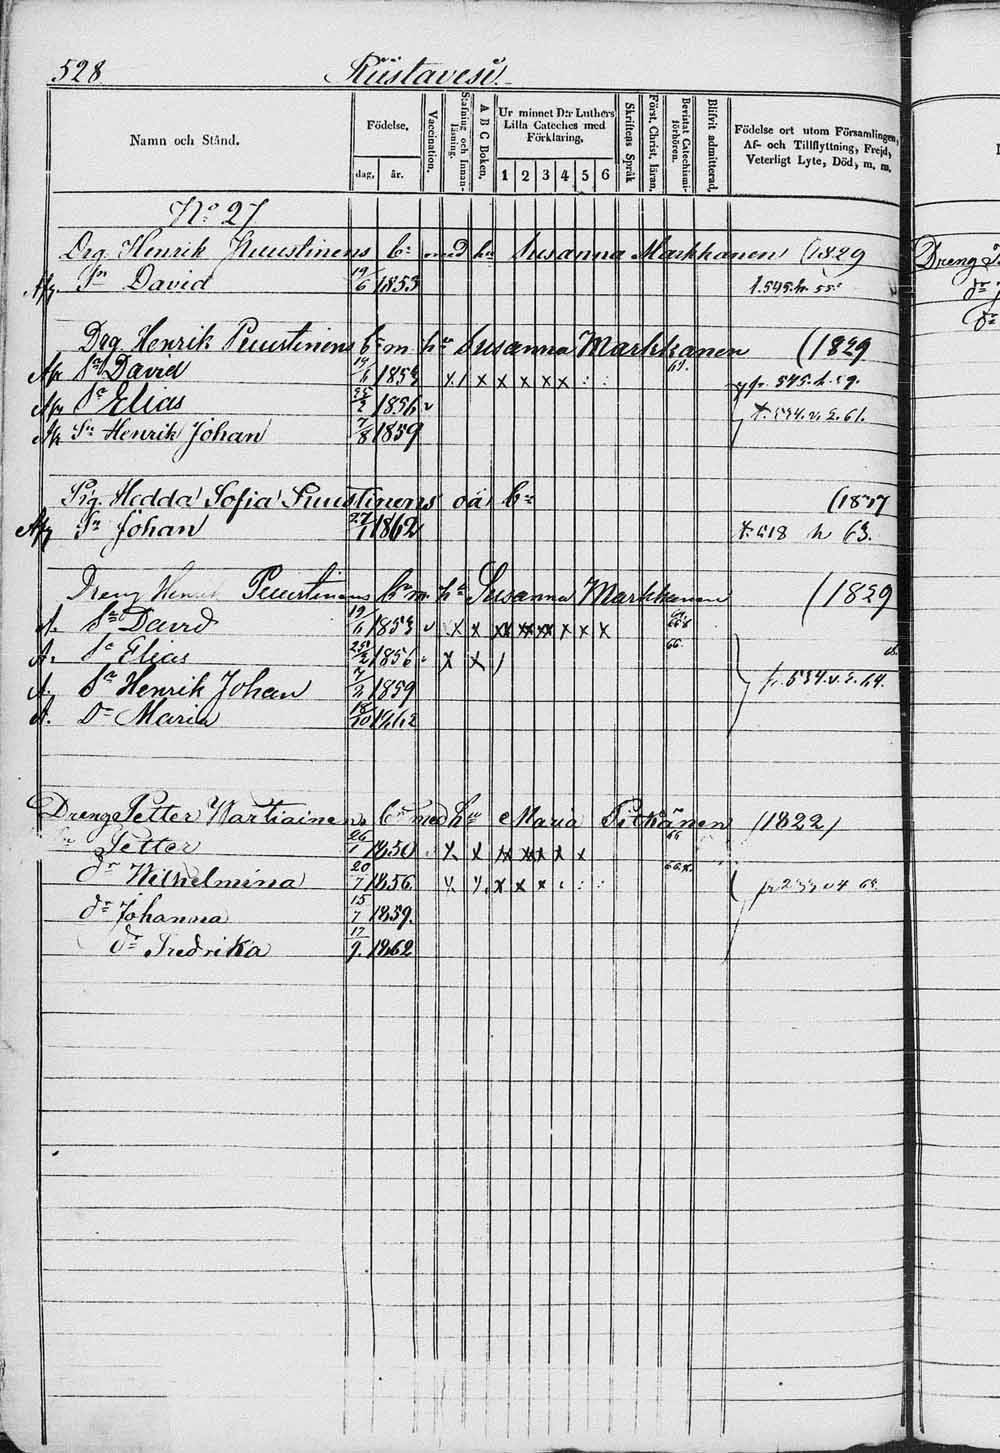 528. Riistavesi.
Namn och Stånd.
Födelse,
dag, år.
Vaccination.
Stafning och Innan-läsning.
A B C Boken.
Ur minnet D:r Luthers Lilla Cateches med Förklaring,
1 2 3 4 5 6
Skriftens Språk
Först. Christ. läran,
Bevistat Catechismi-förhören.
Blifvit admitterad,
Födelse ort utom Församlingen,
Af- och Tillflyttning, Frejd,
Veterligt Lyte, Död, m. m.
No 27.
Drg. Henrik Puustinens bn med hu Susanna Markkanen (1829 Dreng
Afg. Sn David 19/6 1853 t. 545. h. 55.
Drg Henrik Puustinens bn m hu Susanna Markkanen (1829
Afg Sn David 19/6 1853 x / x x x x x : : 61. fr. 545. h. 59.
Afg Sn Elias 25/2 1856 v t. 534. v. 2. 61.
Afg Sn Henrik Johan 7/8 1859
Pig. Hedda Sofia Puustinens oä bn (1837
Afg Sn Johan 27/1 1862 t. 518 h 63.
Dreng Henrik Puustinens bn m hu Susanna Markkanen (1829
A. Sn David 19/6 1853 v x x x x x x x x
A. Sn Elias 25/2 1856 x x / 66.
A. Sn Henrik Johan 7/8 1859 fr. 534. v. 2. 64.
A. Dr Maria 18/10 1862
Dreng Petter Wartiainens bn med hu Maria Pitkänen (1822)
Sn Petter 26/1 1850 x x x x x x x 66
dr Wilhelmina 20/7 1856 x x x x x : : :
dr Johanna 15/7 1859.
dr Fredrika 17/9. 1862